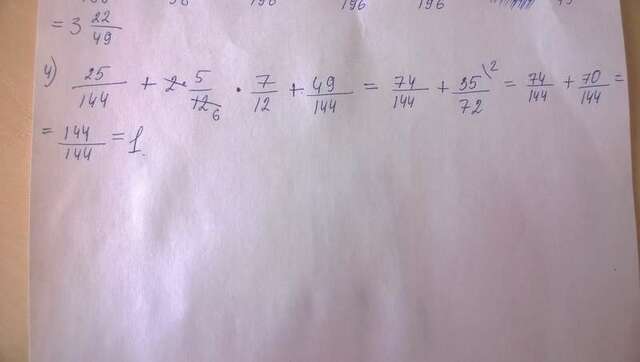 196 196
= 3 22/49
4) 25/144 + 2 · 5/12 6 · 7/12 + 49/144 = 74/144 + 35\2/72 = 74/144 + 70/144 =
= 144/144 = 1.